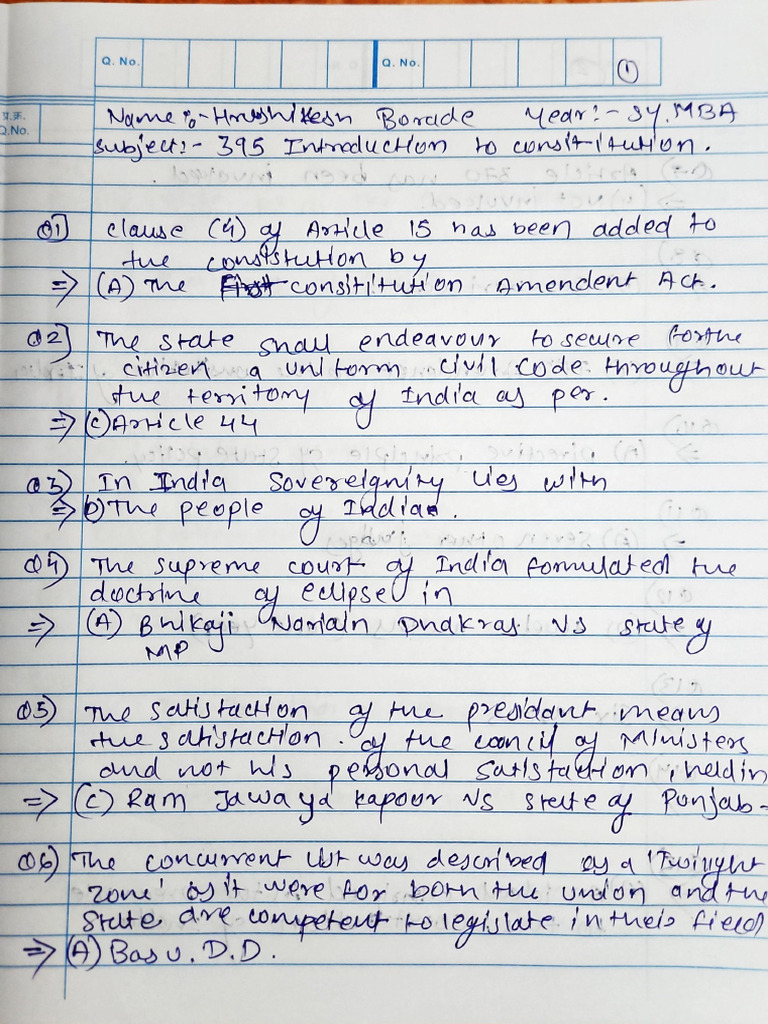 Q. No. Q. No. 1
प्र.क्र.
Q.No.
Name :- Hrushikesh Borade Year:- SY.MBA
Subject:- 395 Introduction to consititution.
Q1] clause (4) of Article 15 has been added to
the constitution by
⇒ (A) The First consititution Amendent Act.
Q2] The state shall endeavour to secure for the
citizen a uniform civil code throughout
the territory of India as per.
⇒ (C) Article 44
Q3) In India Sovereignity lies with
⇒ D) The people of India.
Q4) The supreme court of India formulated the
doctrine of eclipse in
⇒ (A) Bhikaji Nariain Dhakras Vs state of
MP
Q5) The satisfaction of the presidant means
the satisfaction of the council of Ministers
and not his personal satisfaction, held in
⇒ (C) Ram Jawaya Kapour Vs state of Punjab-
Q6) The concurrent list was described as a 'Twilight
zone' as it were for both the union and the
State are competent to legislate in their field
⇒ (A) Basu. D.D.